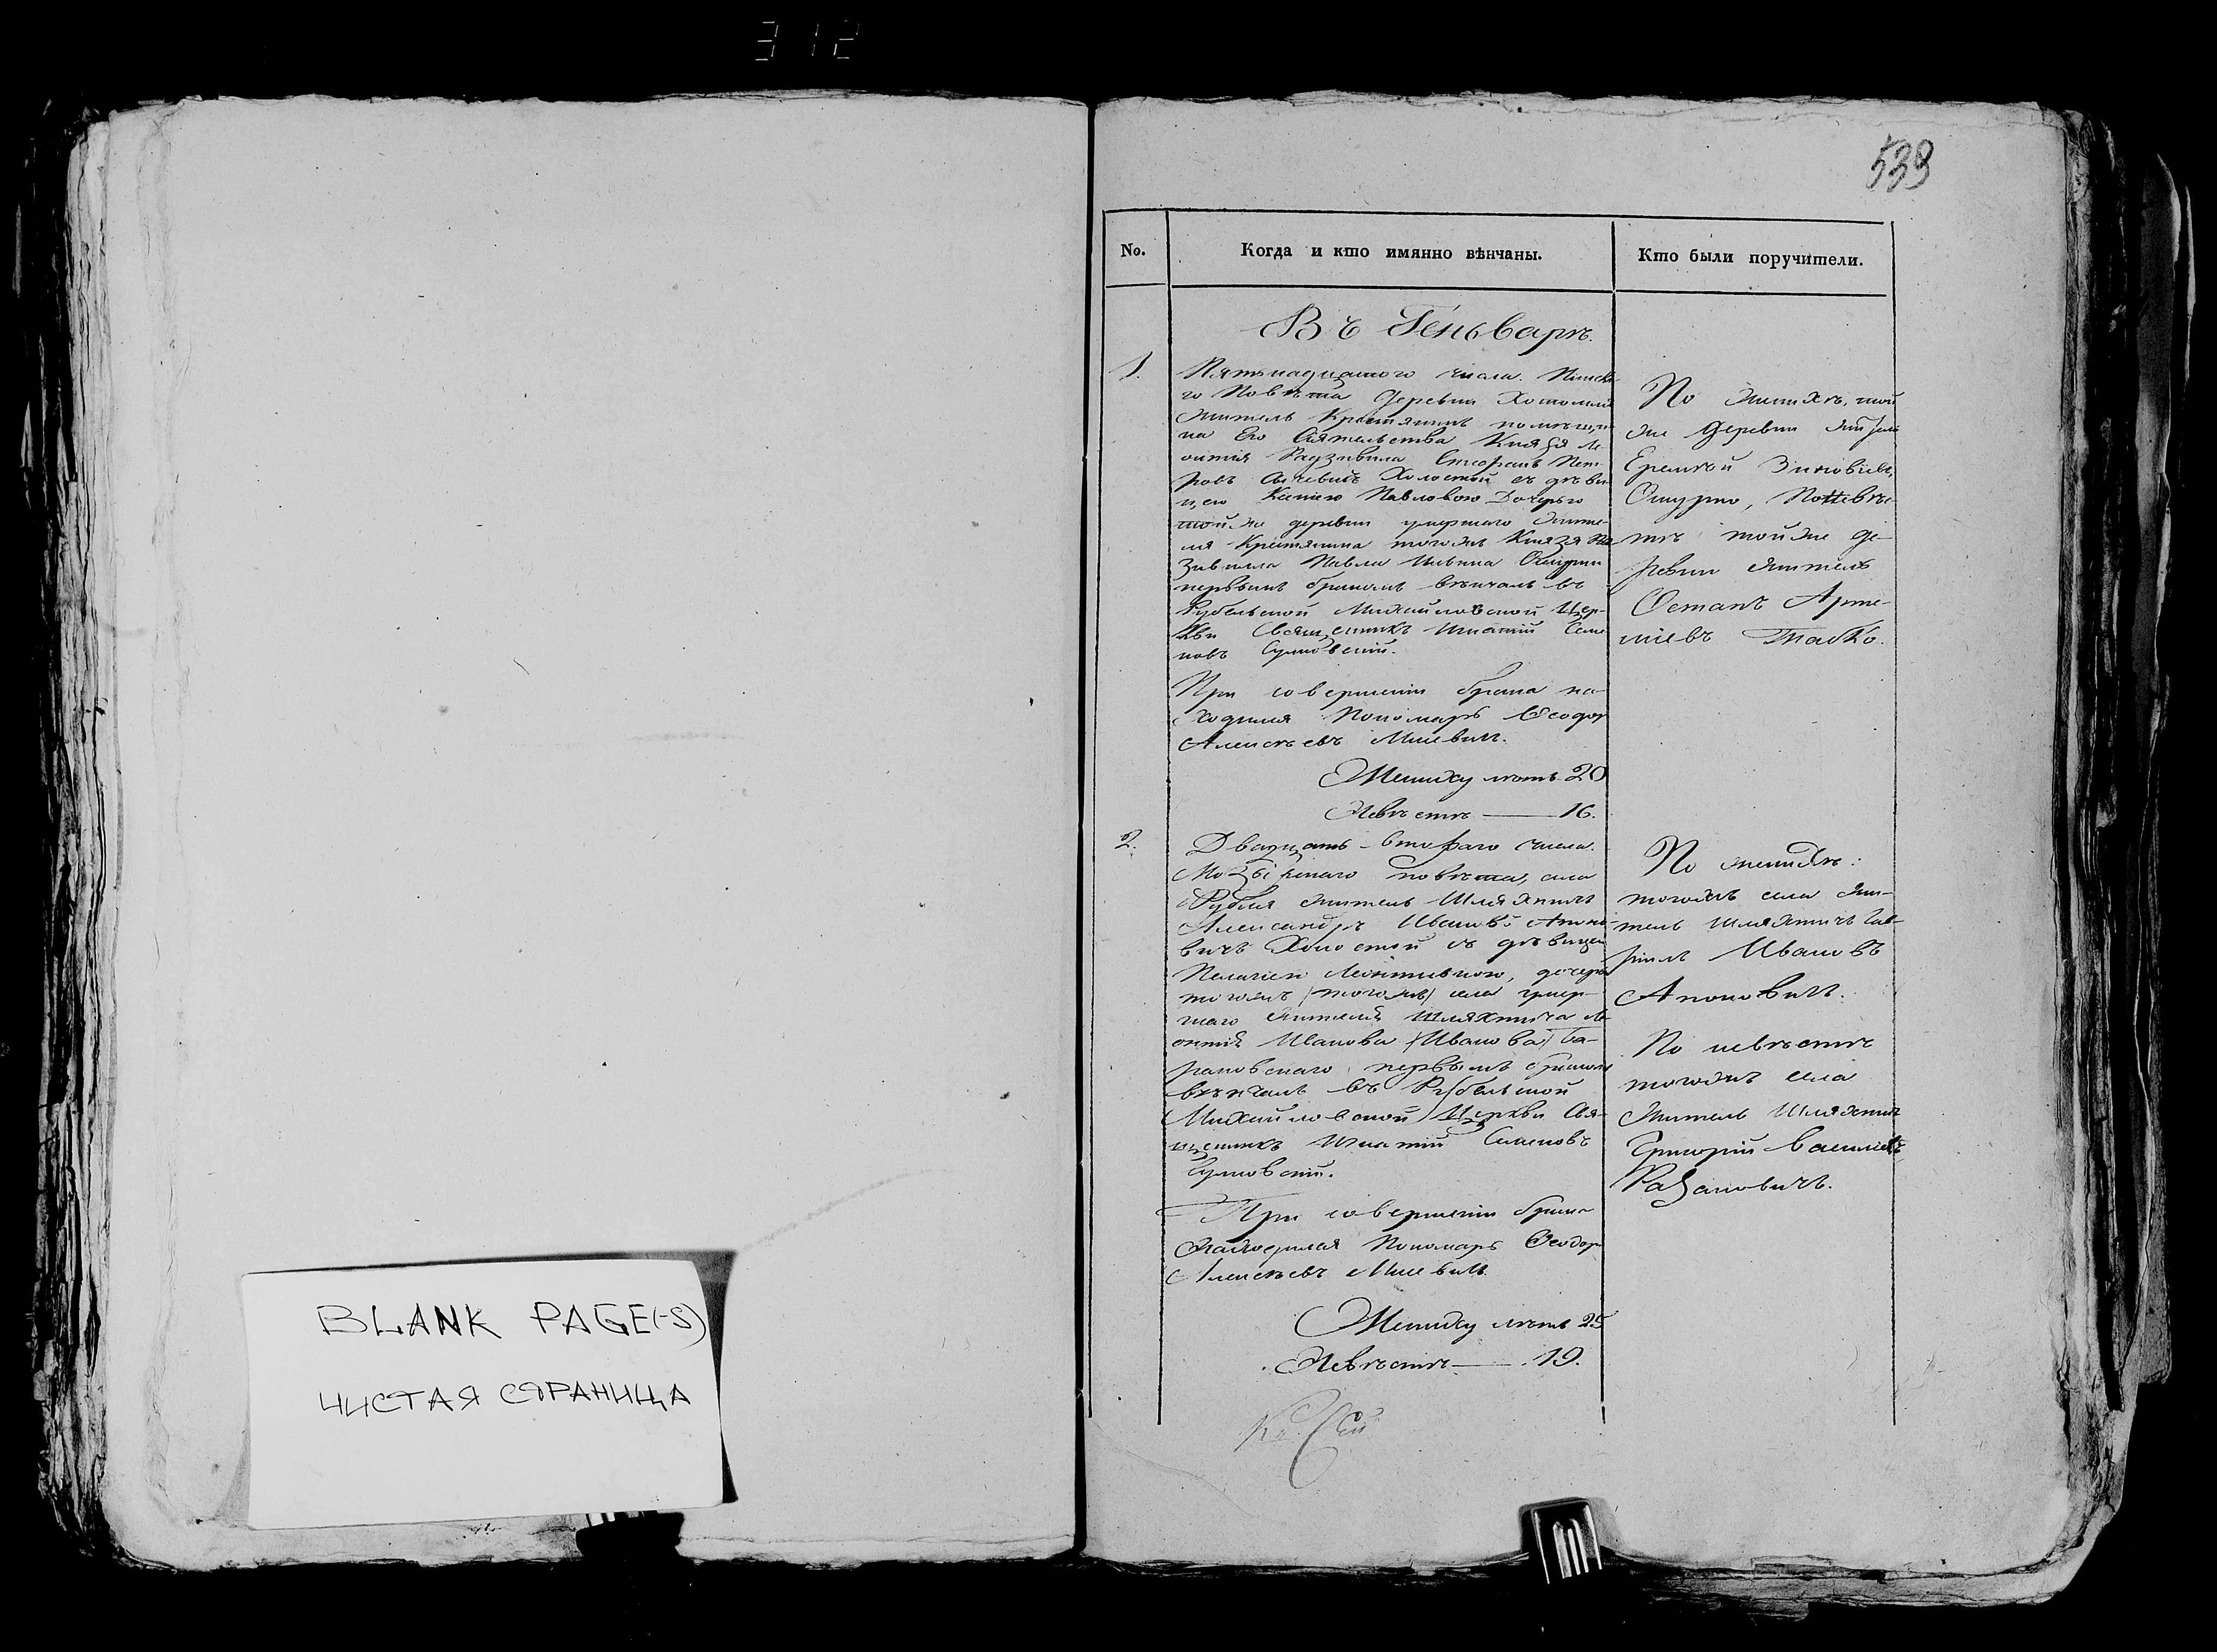 312
539
No.
Когда и кто имянно вѣнчаны.
Кто были поручители.
Въ Геньварѣ.
1.
Пятьнадцатого числа. Пинска-
го Повѣта Деревни Хотомля
житель Крестянинъ помѣщи-
ка Его Сіятельства Князя Ле-
онтія Радзивила Стефанъ Пет-
ровъ Холостой съ дѣви-
цею Ксеніею Павловою Дочерью
той же деревни умершаго жите-
ля Крестянина тогожъ Князя Ра
зивилла Павла Ошурки
первымъ бракомъ вѣнчалъ въ
Рубельской Михайловской Цер-
кви Священникъ Игнатій Семе
новъ
При совершеніи брака на-
ходился Пономарь Ѳеодор
Алексѣевъ Мицевичъ.
Жениху лѣтъ 20
Невѣстѣ — 16.
По женихѣ, той
же Деревни житель
Еремѣй Зиновіевъ
Ошурко, По Невѣс-
тѣ той же де-
ревни житель
Остапъ Арте-
міевъ
2.
Двадцать-втораго числа.
Мозырскаго повѣта, села
Рубля житель Шляхтичъ
Александръ Ивановъ
вичъ Холостой съ дѣвицею
Пелагіею Леонтіевною, дочерью
тогожъ /тогожъ/ села умер-
шаго жителя Шляхтича Ле-
онтія Иванова /Иванова/ Ба-
рановскаго первымъ бракомъ
вѣнчалъ въ Рубельской
Михайловской Церкви Свя-
щенникъ Игнатій Семеновъ
При совершеніи брака
находился Пономарь Ѳеодор
Алексѣевъ Мицевичъ.
Жениху лѣтъ 25
Невѣстѣ — 19.
По женихѣ:
тогожъ села жи-
тель Шляхтичъ Гав-
ріилъ Ивановъ
По невѣстѣ
тогожъ села
житель Шляхтичъ
Григорій Василіевъ
BLANK PAGE(-S)
ЧИСТАЯ СТРАНИЦА